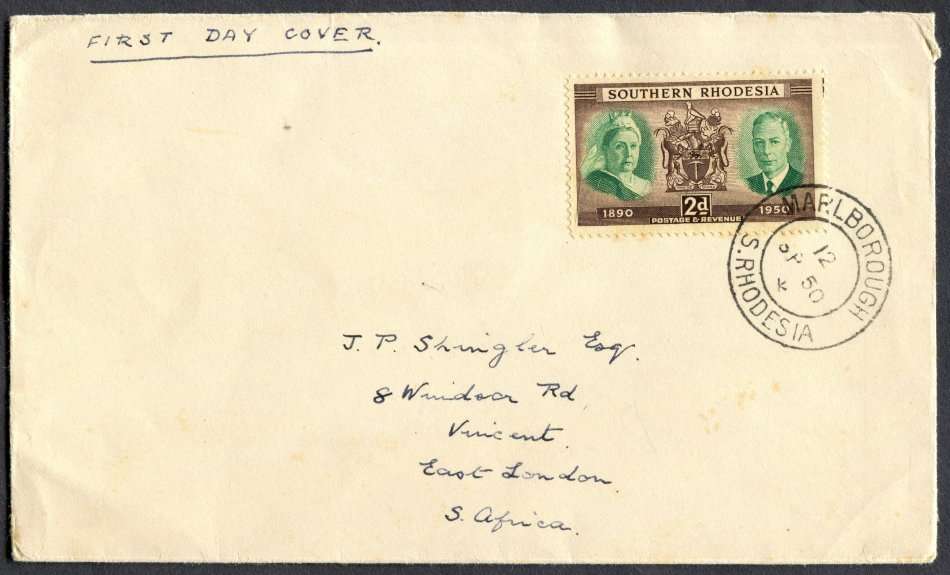 FIRST DAY COVER.
SOUTHERN RHODESIA
1890 2d 1950
POSTAGE & REVENUE
MARLBOROUGH
12
SP 50
K
S. RHODESIA
J. P. Shingler Esq.
8 Windsor Rd
Vincent.
East London
S. Africa.